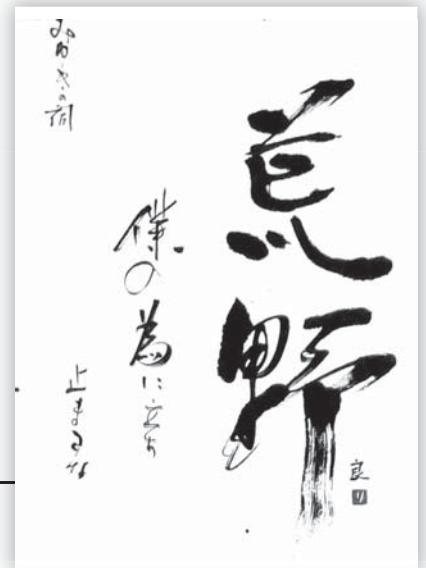 荒野
良
僕の為に立ち
止まるな
みゆきの詞